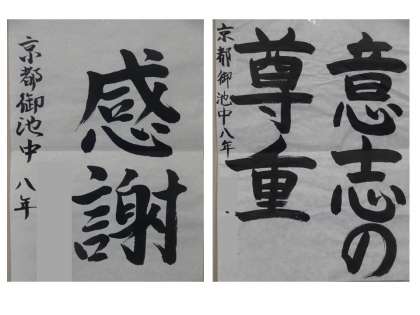 感謝
京都御池中 八年
意志の
尊重
京都御池中八年